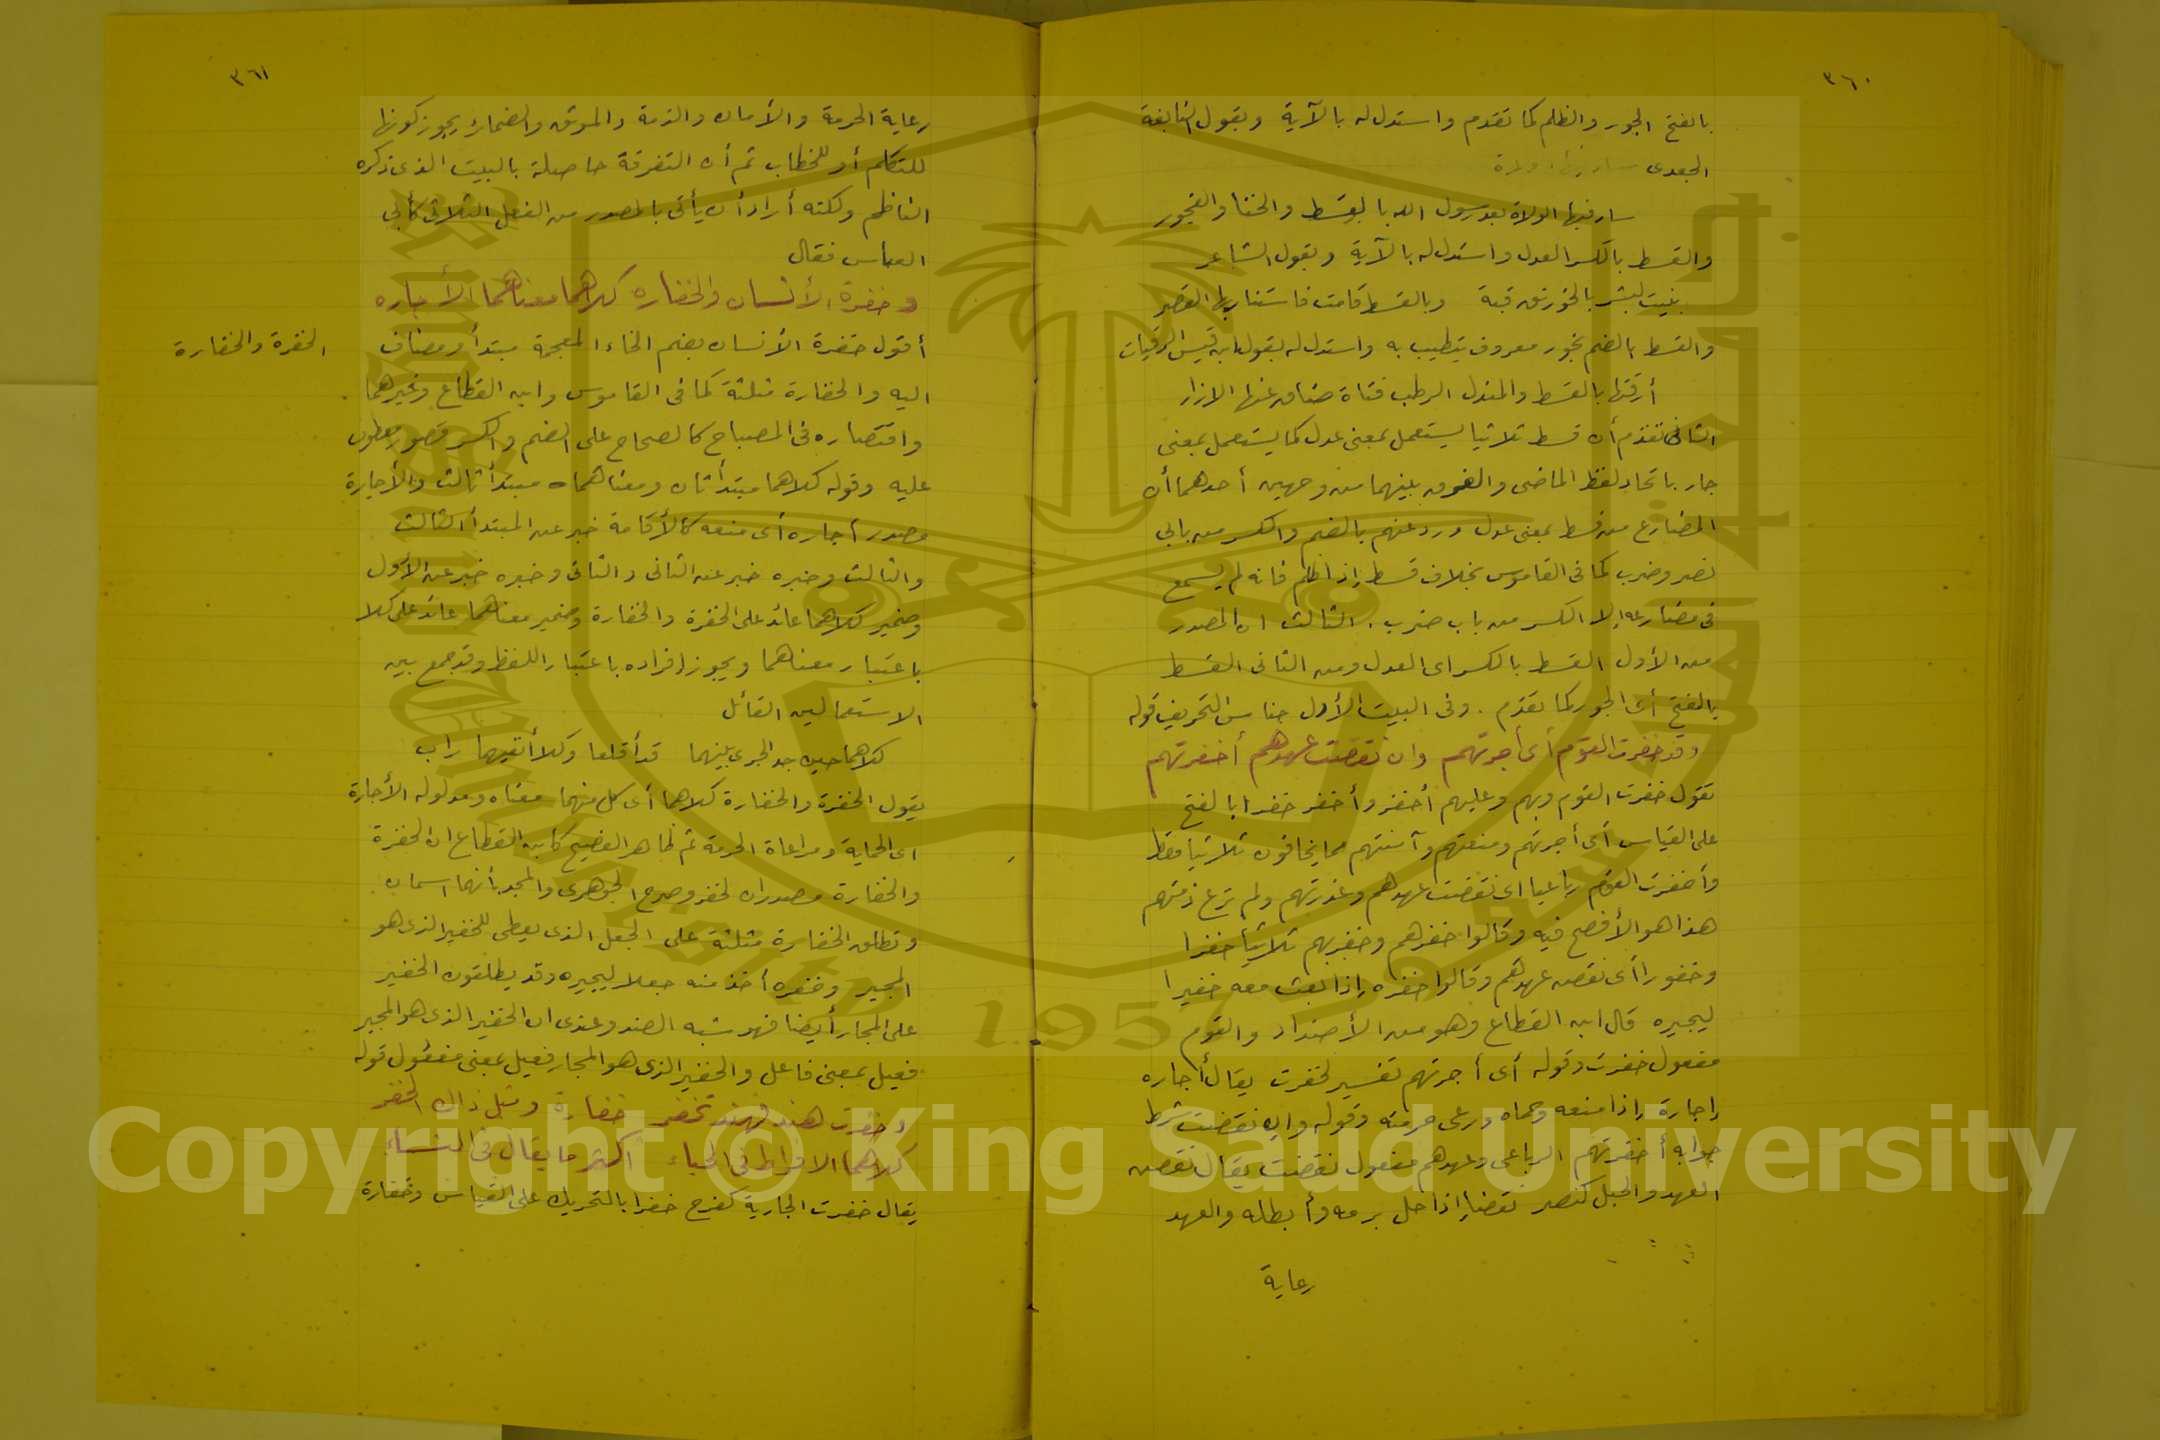 ٣٦٠
بالفتح الجور والظلم كما تقدم واستدل له بالآية وبقول النابغة
الجعدى
سار فيها الولاة بعد رسول الله بالقسط والخنا والفجور
والقسط بالكسر العدل واستدل له بالآية وبقول الشاعر
بنيت لبشر بالخورنق قبة وبالقسط قامت فاستنار بها القصر
والقسط بالضم بخور معروف يتطيب به واستدل له بقول ابن قيس الرقيات
أرقتها بالقسط والمندل الرطب فتاة ضاق عنها الازار
الثانى تقدم أن قسط ثلاثيا يستعمل بمعنى عدل كما يستعمل بمعنى
جار باتحاد لفظ الماضى والفرق بينهما من وجهين أحدهما أن
المضارع من قسط بمعنى عدل ورد عنهم بالضم والكسر من بابى
نصر وضرب كما فى القاموس بخلاف قسط إذا ظلم فانه لم يسمع
فى مضارعه إلا الكسر من باب ضرب . الثالث ان المصدر
من الأول القسط بالكسر اى العدل ومن الثانى القسط
بالفتح أى الجور كما تقدم . وفى البيت الأول جناس التحريف قوله
وقد خفرت القوم أى أجرتهم وان نقضت عهدهم أخفرتهم
تقول خفرت القوم وبهم وعليهم أخفر وأخفر خفرا بالفتح
على القياس أى أجرتهم ومنعتهم وآمنتهم مما يخافون ثلاثيا فقط
وأخفرت القوم رباعيا اى نقضت عهدهم وغدرتهم ولم ترع ذمتهم
هذا هو الأفصح فيه وقالوا خفرهم وخفر بهم ثلاثيا خفرا
وخفورا أى نقض عهدهم وقالوا خفره إذا بعث معه خفيرا
ليجيره قال ابن القطاع وهو من الأضداد والقوم
مفعول خفرت وقوله أى أجرتهم تفسير لخفرت يقال أجاره
إجارة إذا منعه وحماه ورعى حرمته وقوله وان نقضت شرط
جوابه أخفرتهم الرباعى وعهدهم مفعول نقضت يقال نقض
العهد والحبل كنصر نقضا إذا حل برمه وأبطله والعهد
رعاية
٣٦١
رعاية الحرمة والأمان والذمة والموثق والضمائر يجوز كونها
للتكلم أو للخطاب ثم أن التفرقة حاصلة بالبيت الذى ذكره
الناظم ولكنه أراد أن يأتى بالمصدر من الفعل الثلاثى كأبى
العباس فقال
وخفرة الأنسان والخفاره كلاهما معناهما الأجاره
الخفرة والخفارة
أقول خفرة الأنسان بضم الخاء المعجمة مبتدأ ومضاف
اليه والخفارة مثلثة كما فى القاموس وابن القطاع وغيرهما
واقتصاره فى المصباح كالصحاح على الضم والكسر قصور معطوف
عليه وقوله كلاهما مبتدأ ثان ومعناهما مبتدأ ثالث والأجارة
مصدر أجاره أى منعه كالأقامة خبر عن المبتدأ الثالث
والثالث وخبره خبر عن الثانى والثانى وخبره خبر عن الأول
وضمير كلاهما عائد على الخفرة والخفارة وضمير معناهما عائد على كلا
باعتبار معناهما ويجوز إفراده باعتبار اللفظ وقد جمع بين
الاستعمالين القائل
كلاهما حين جد الجرى بينهما قد أقلعا وكلا أنفيهما رابى
يقول الخفرة والخفارة كلاهما أى كل منهما معناه ومدلوله الأجارة
اى الحماية ومراعاة الحرمة ثم ظاهر الفصيح كابن القطاع ان الخفرة
والخفارة مصدران لخفر وصرح الجوهرى والمجد بأنهما اسمان
وتطلق الخفارة مثلثة على الجعل الذى يعطى للخفير الذى هو
المجير وخفره أخذ منه جعلا ليجيره وقد يطلقون الخفير
على المجار أيضا فهو شبه الضد وعندى ان الخفير الذى هو المجير
فعيل بمعنى فاعل والخفير الذى هو المجار فعيل بمعنى مفعول قوله
وخفرت هند فهند تخفر خفارة ومثل ذاك الخفر
كلاهما الافراط فى الحياء أكثر ما يقال فى النساء
يقال خفرت الجارية كفرح خفرا بالتحريك على القياس وخفارة
1957
Copyright © King Saud University